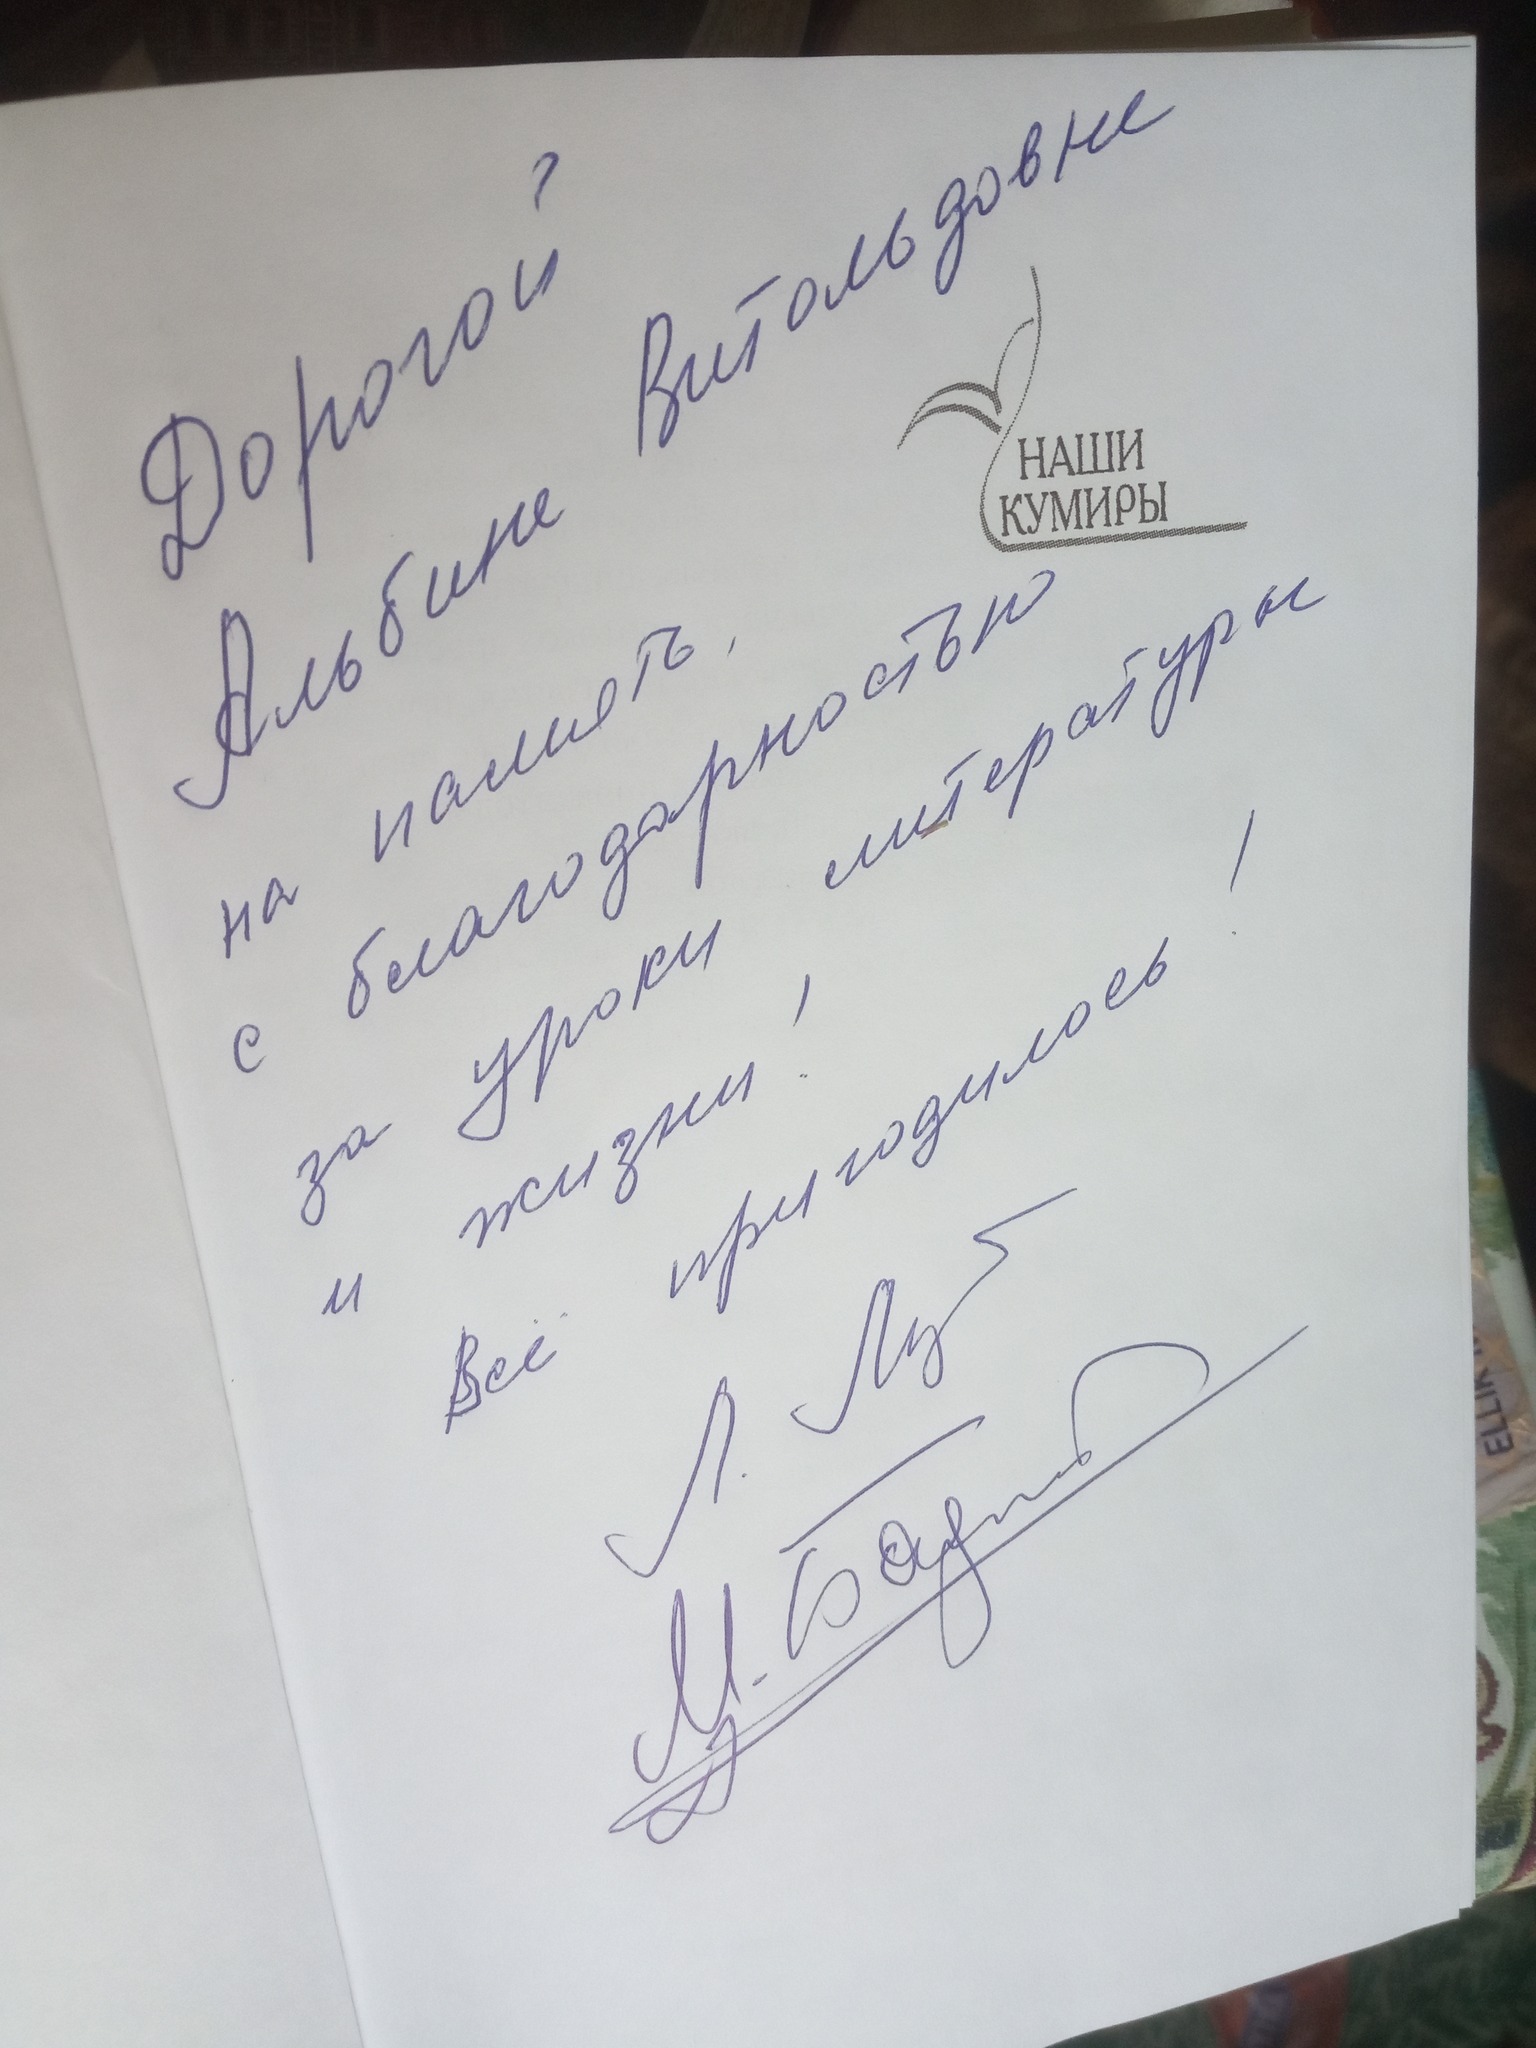 Дорогой
Альбине Витольдовне
НАШИ
КУМИРЫ
на память,
с благодарностью
за уроки литературы
и жизни!
Всё пригодилось!
Л.
М.
ELLIK